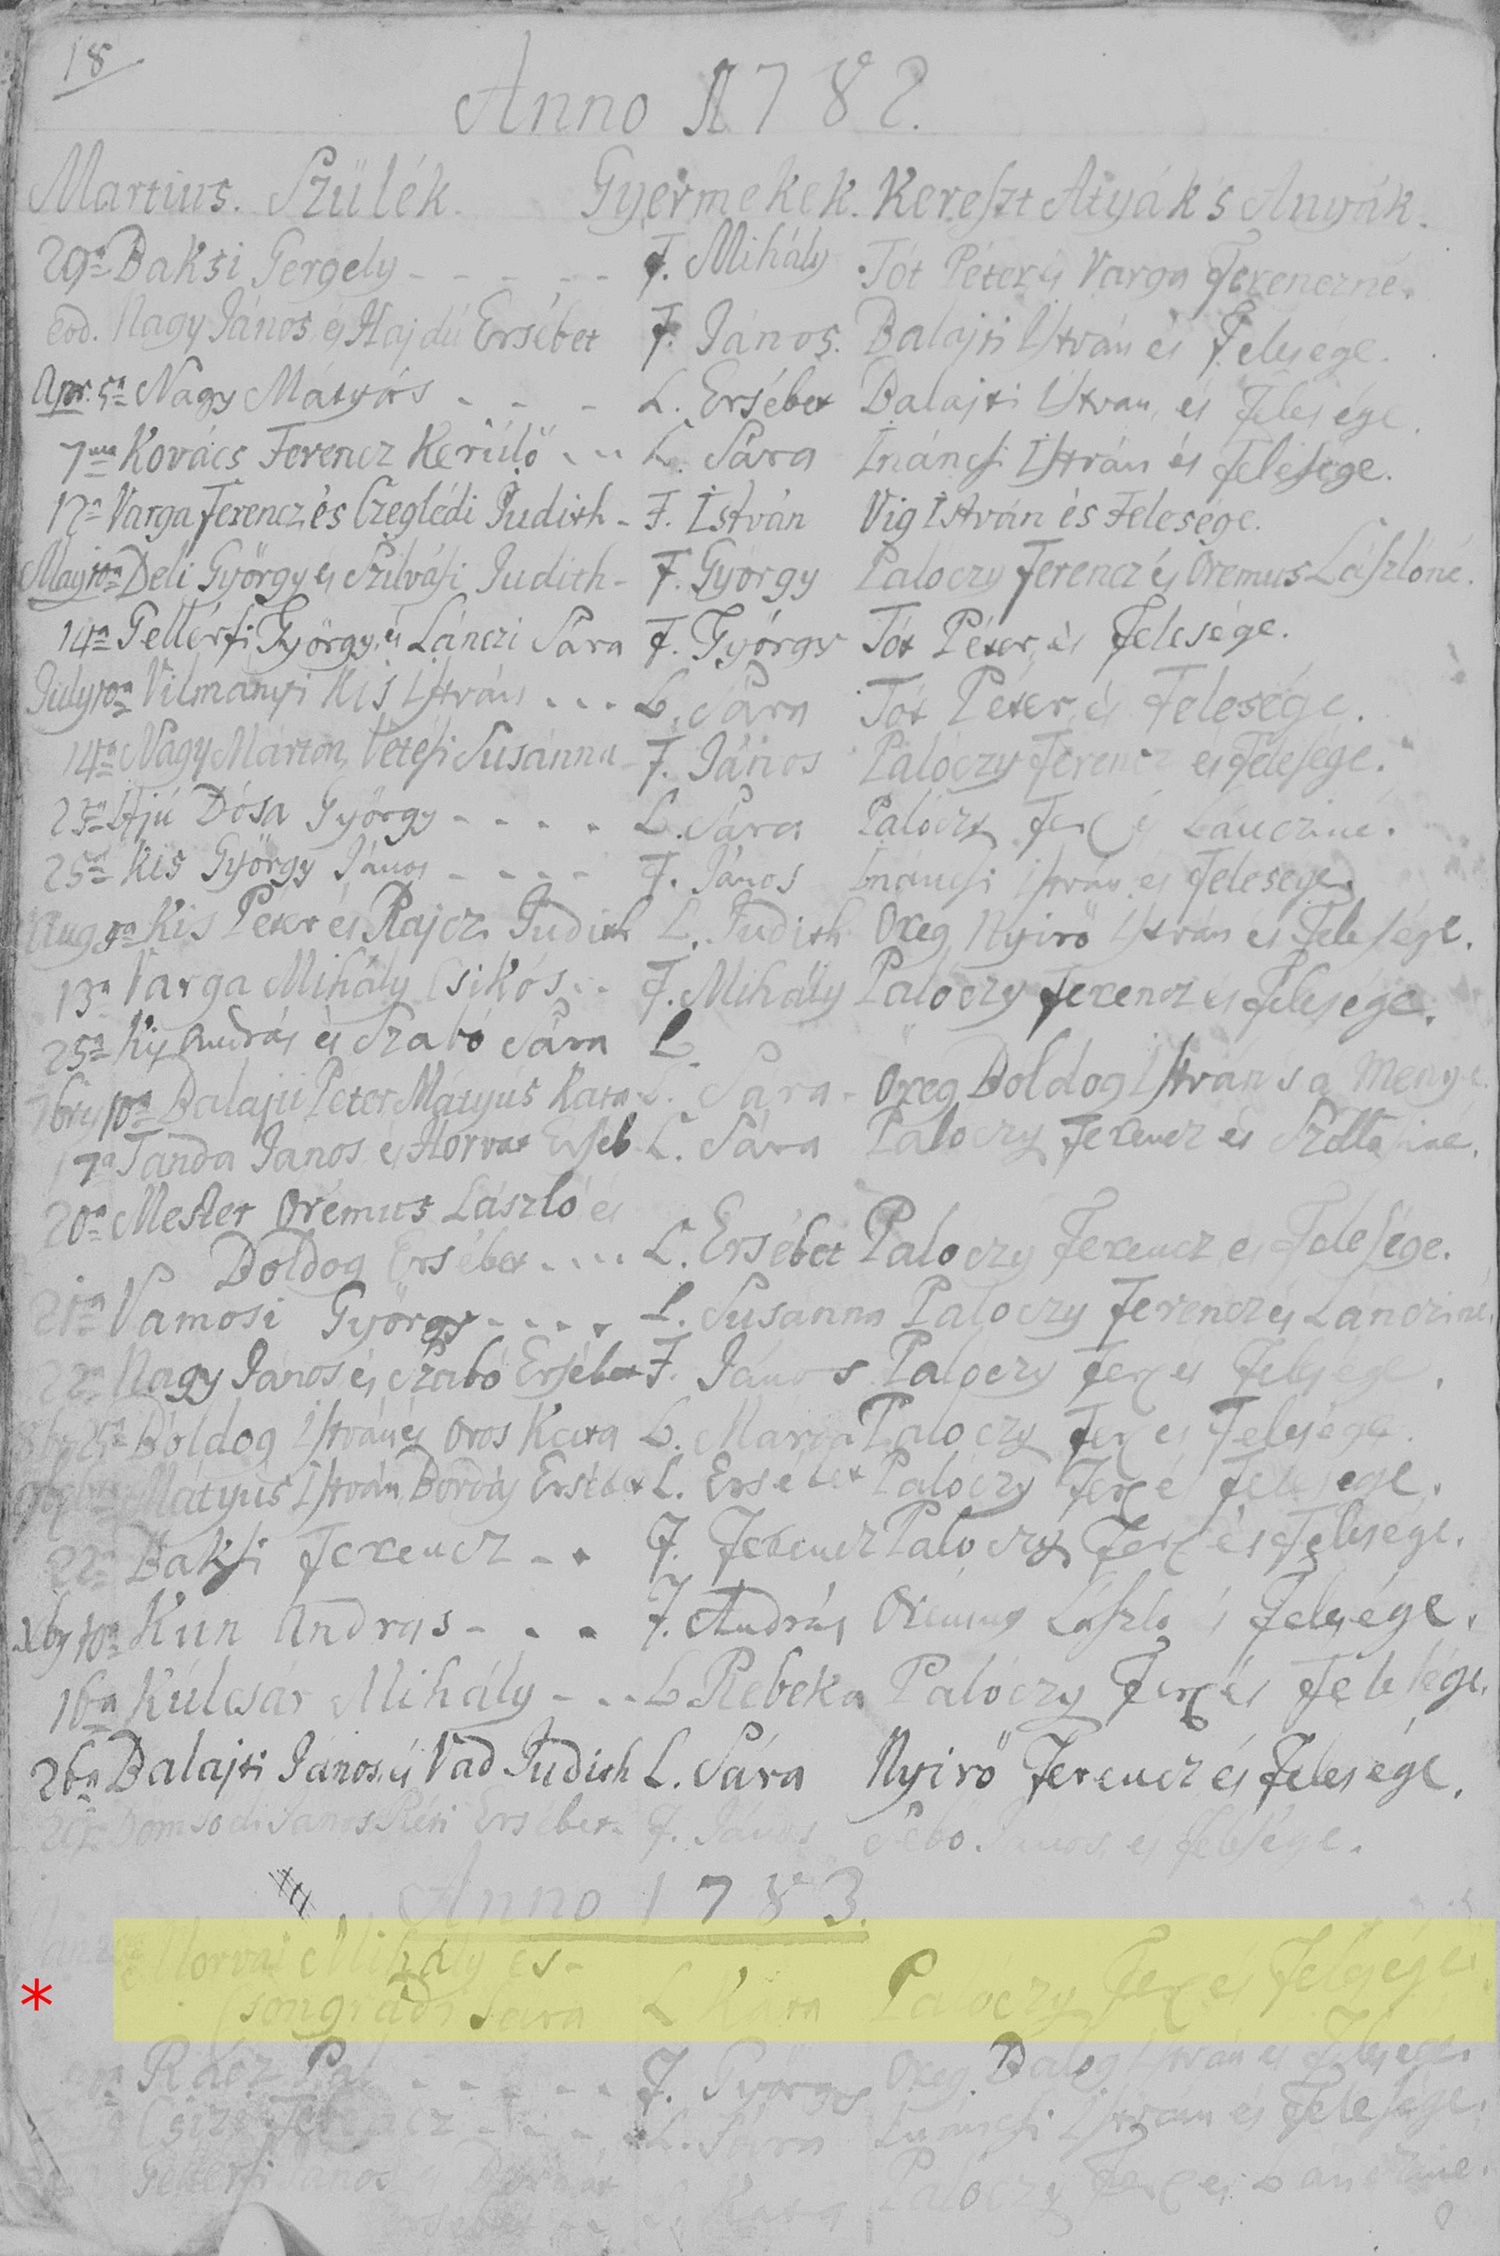 18
Anno 1782.
Martius. Szülék. Gyermekek. Kereszt Atyák s Anyák.
29a Baksi Gergely - - - - - F. Mihály Tót Péter és Varga Ferenczné.
eod. Nagy János és Hajdú Ersébet F. János. Balajti István és Felesége.
Apr. 5a Nagy Mátyás - - - L. Ersébet Balajti István és Felesége.
7ma Kovács Ferencz Kerülő - - - L. Sára Ináncsi István és Felesége.
12a Varga Ferencz és Czeglédi Judith - F. István Vig István és Felesége.
Maj 10a Deli György és Szilvási Judith - F. György Palóczy Ferencz és Oremus Lászlóné.
14a Gellérfi György és Lánczi Sára F. György Tót Péter és Felesége.
July 10a Vilmányi Kis István - - - L. Sára Tót Péter és Felesége.
14a Nagy Márton, Vetési Susánna - F. János Palóczy Ferencz és Felesége.
23a Ifjú Dósa György - - - - L. Sára Palóczy Fer és Láncziné.
25a Kis György János - - - - F. János Ináncsi István és Felesége.
Aug Kis Péter és Rajcz Judith L. Judith Öreg Nyirő István és Felesége.
13a Varga Mihály Csikós - - F. Mihály Palóczy Ferencz és Felesége.
25a Kis András és Szabó Sára L.
7bris 10a Balajti Péter Mátyus Kata L. Sára - Öreg Boldog István s a Menye.
17a Tanda János és Horvat Erséb L. Sára Palóczy Ferencz és
20a Mester Oremus László és
Boldog Ersébet - - - - L. Ersébet Palóczy Ferencz és Felesége.
21a Vamosi György - - - - L. Susánna Palóczy Ferencz és Láncziné.
22a Nagy János és Szabó Ersébet F. János Palóczy Fer és Felesége.
25a Boldog István és Oros Kata L. Maria Palóczy Fer és Felesége.
Mátyus István Ersébet L. Ersébet Palóczy Fer és Felesége.
22a Baksi Ferencz - - F. Ferencz Palóczy Fer és Felesége.
Xby 10a Kun András - - - F. András Oremus László és Felesége.
16a Kúlcsár Mihály - - - L. Rebeka Palóczy Fer és Felesége.
26a Balajti János és Vad Judith L. Sára Nyirő Ferencz és Felesége.
Domsodi János Réti Ersébet - F. János Sebő János és Felesége.
Anno 1783.
Morvai Mihály és -
Csongrádi Sára L. Kata Palóczy Fer és Felesége.
Rácz Pál - - - - - F. György Öreg Balog István és Felesége.
Ferencz - - - - L. Sára Ináncsi István és Felesége.
Gellérfi János és
Ersébet - - L. Kata Palóczy Fer és Láncziné.